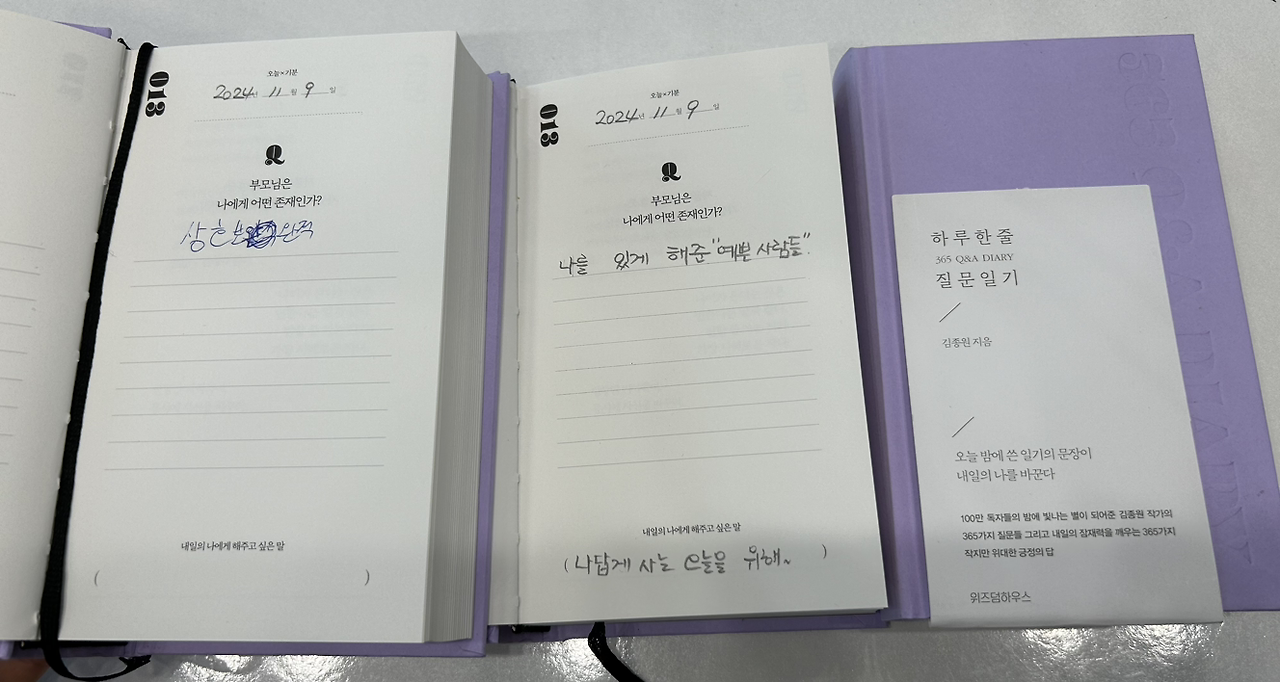 013
오늘×기분
2024년 11월 9일
Q
부모님은
나에게 어떤 존재인가?
상호보완적
내일의 나에게 해주고 싶은 말
( )
013
오늘×기분
2024년 11월 9일
Q
부모님은
나에게 어떤 존재인가?
나를 있게 해준 "예쁜 사람들".
내일의 나에게 해주고 싶은 말
(나답게 사는 오늘을 위해~ )
하루 한 줄
365 Q&A DIARY
질문 일기
김종원 지음
오늘 밤에 쓴 일기의 문장이
내일의 나를 바꾼다
100만 독자들의 밤에 빛나는 별이 되어준 김종원 작가의
365가지 질문들 그리고 내일의 잠재력을 깨우는 365가지
작지만 위대한 긍정의 답
위즈덤하우스
365 Q&A DIARY